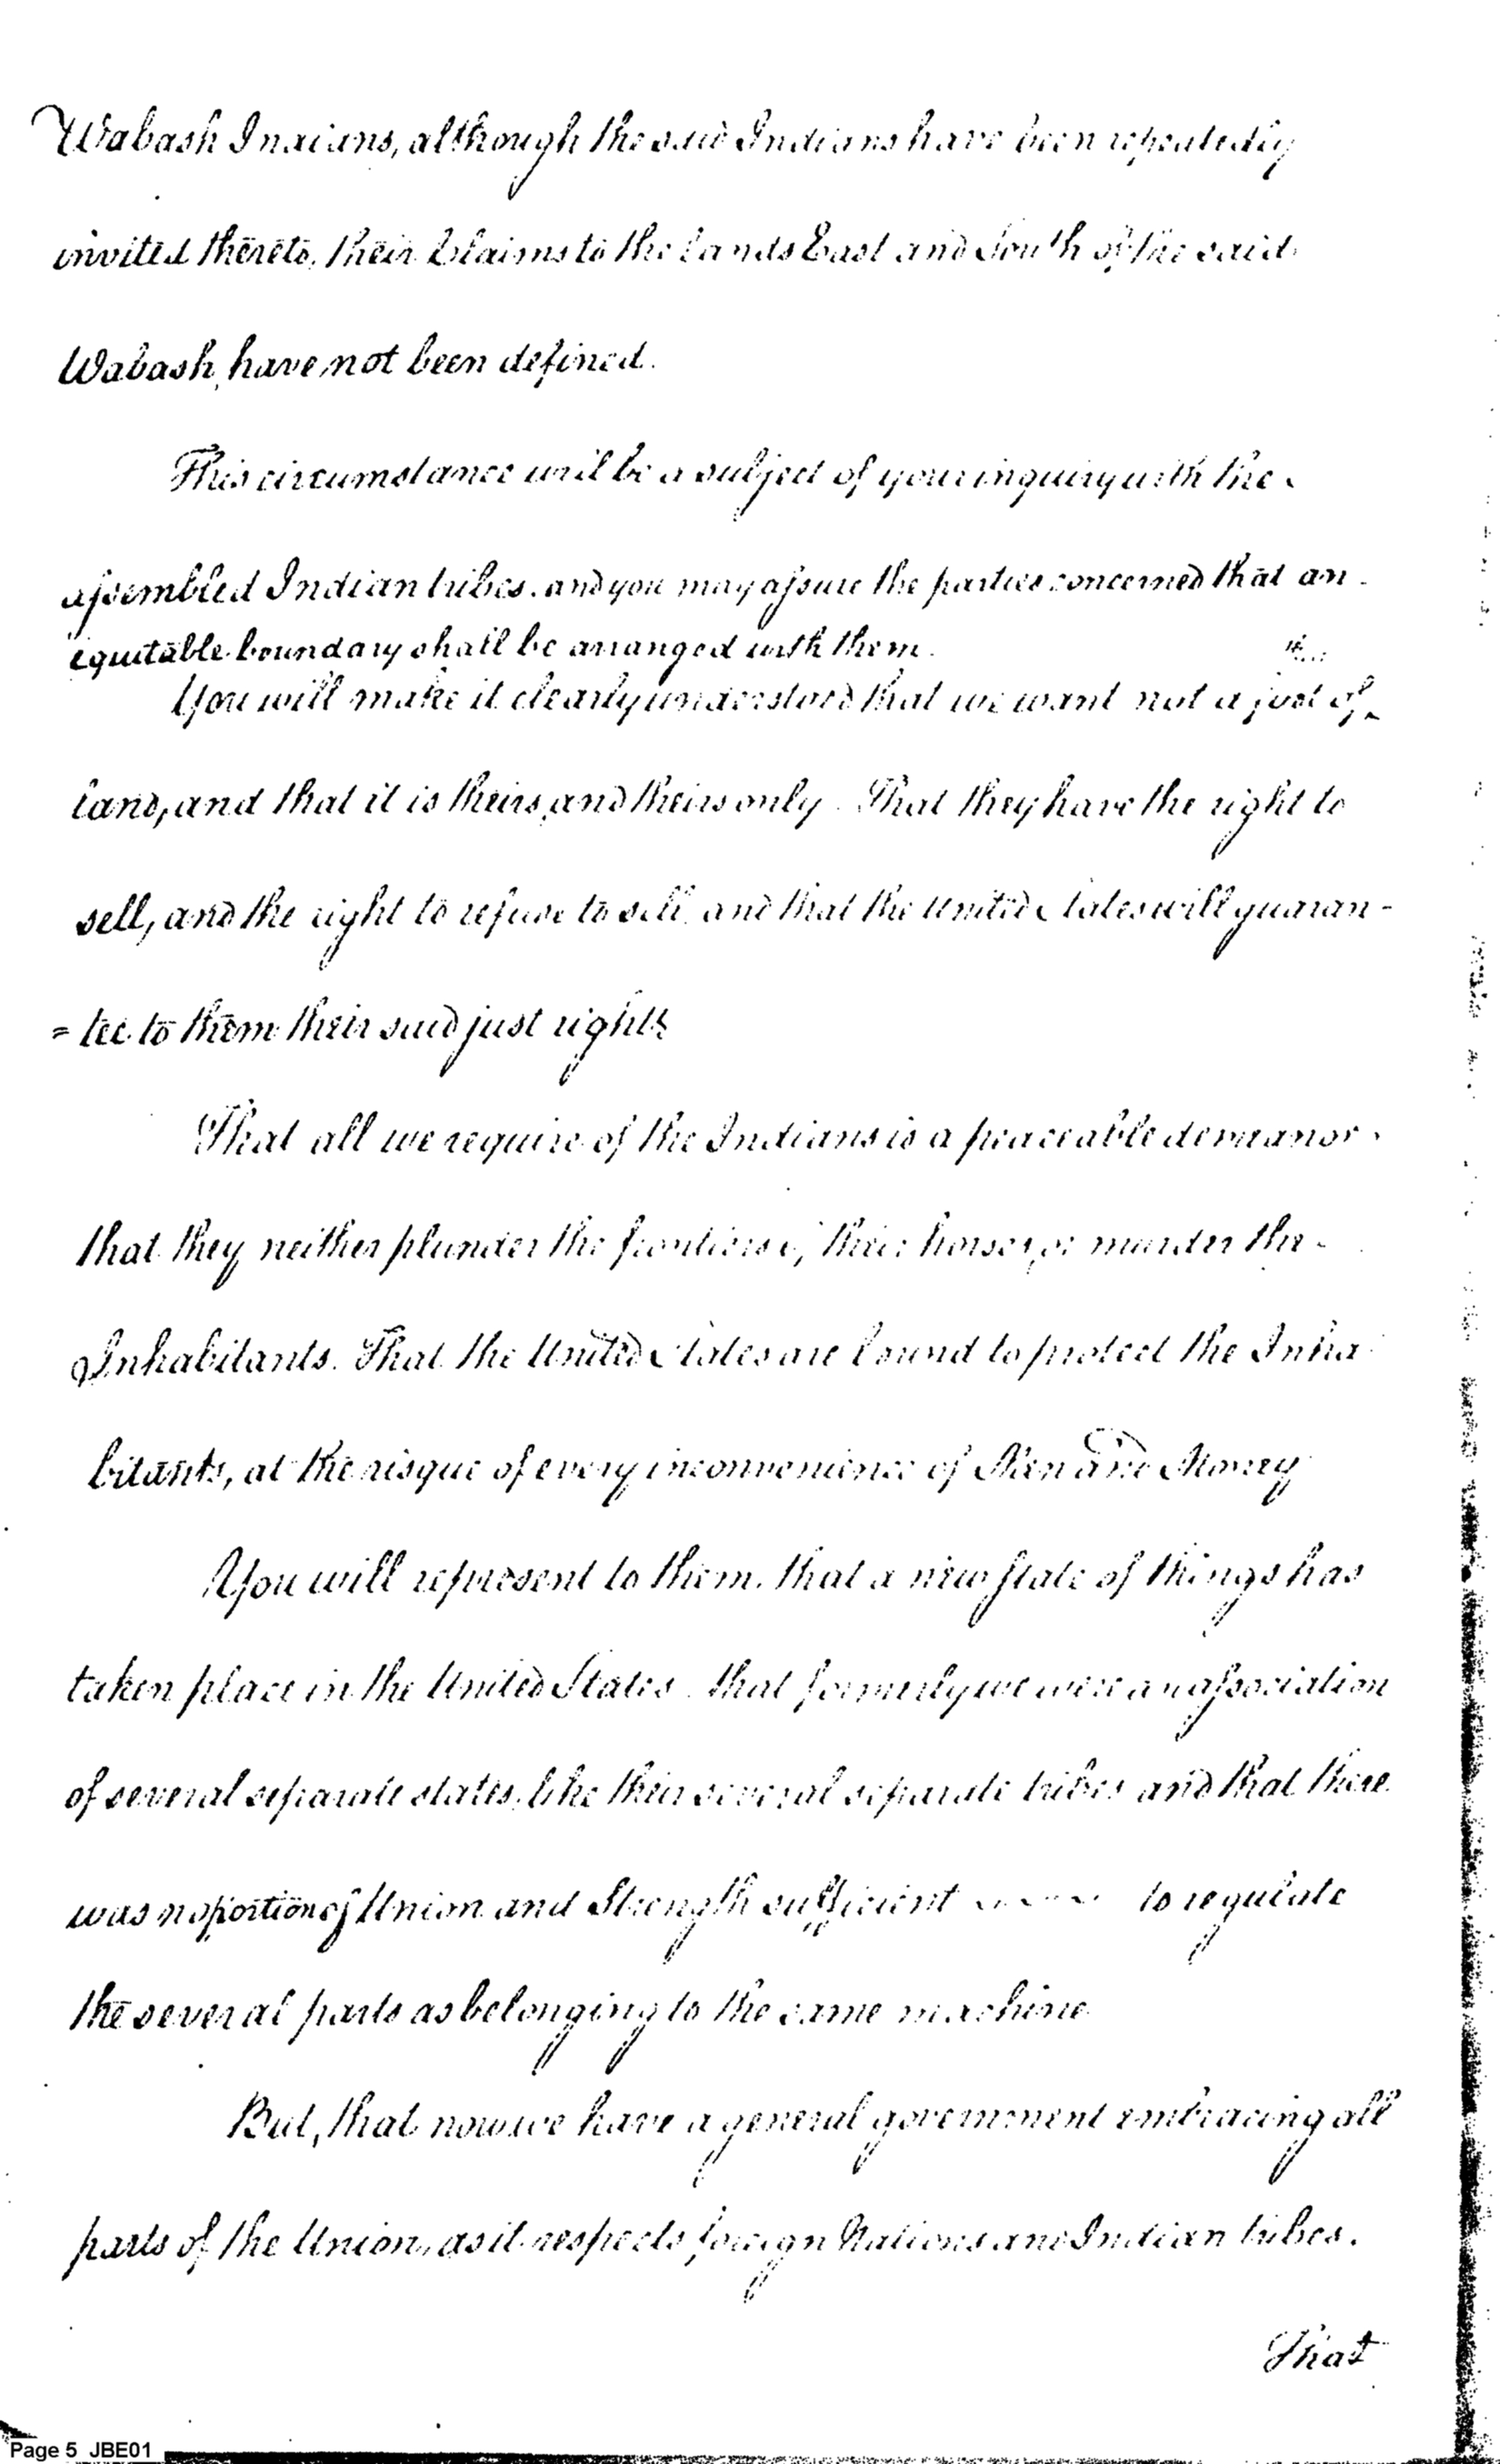 Wabash Indians, although the said Indians have been repeatedly
invited thereto, their Claims to the Lands East and South of the said
Wabash, have not been defined.
This circumstance will be a subject of your inquiry with the
assembled Indian tribes. and you may assure the parties concerned that an
equitable boundary shall be arranged with them.
their
You will make it clearly understood that we want not a foot of
land, and that it is theirs, and theirs only. That they have the right to
sell, and the right to refuse to sell, and that the United States will guaran-
=tee to them their said just rights
That all we require of the Indians is a peaceable demeanor.
that they neither plunder the frontiers of their horses, or murder the
Inhabitants. That the United States are bound to protect the Inha
bitants, at the risque of every inconvenience of Men and Money
You will represent to them, that a new state of things has
taken place in the United States. that formerly we were an association
of several separate states, like their several separate tribes and that there
was no portion of Union and Strength sufficient to regulate
the several parts as belonging to the same machine
But, that now we have a general government embracing all
parts of the Union, as it respects foreign Nations and Indian tribes.
That
Page 5 JBE01